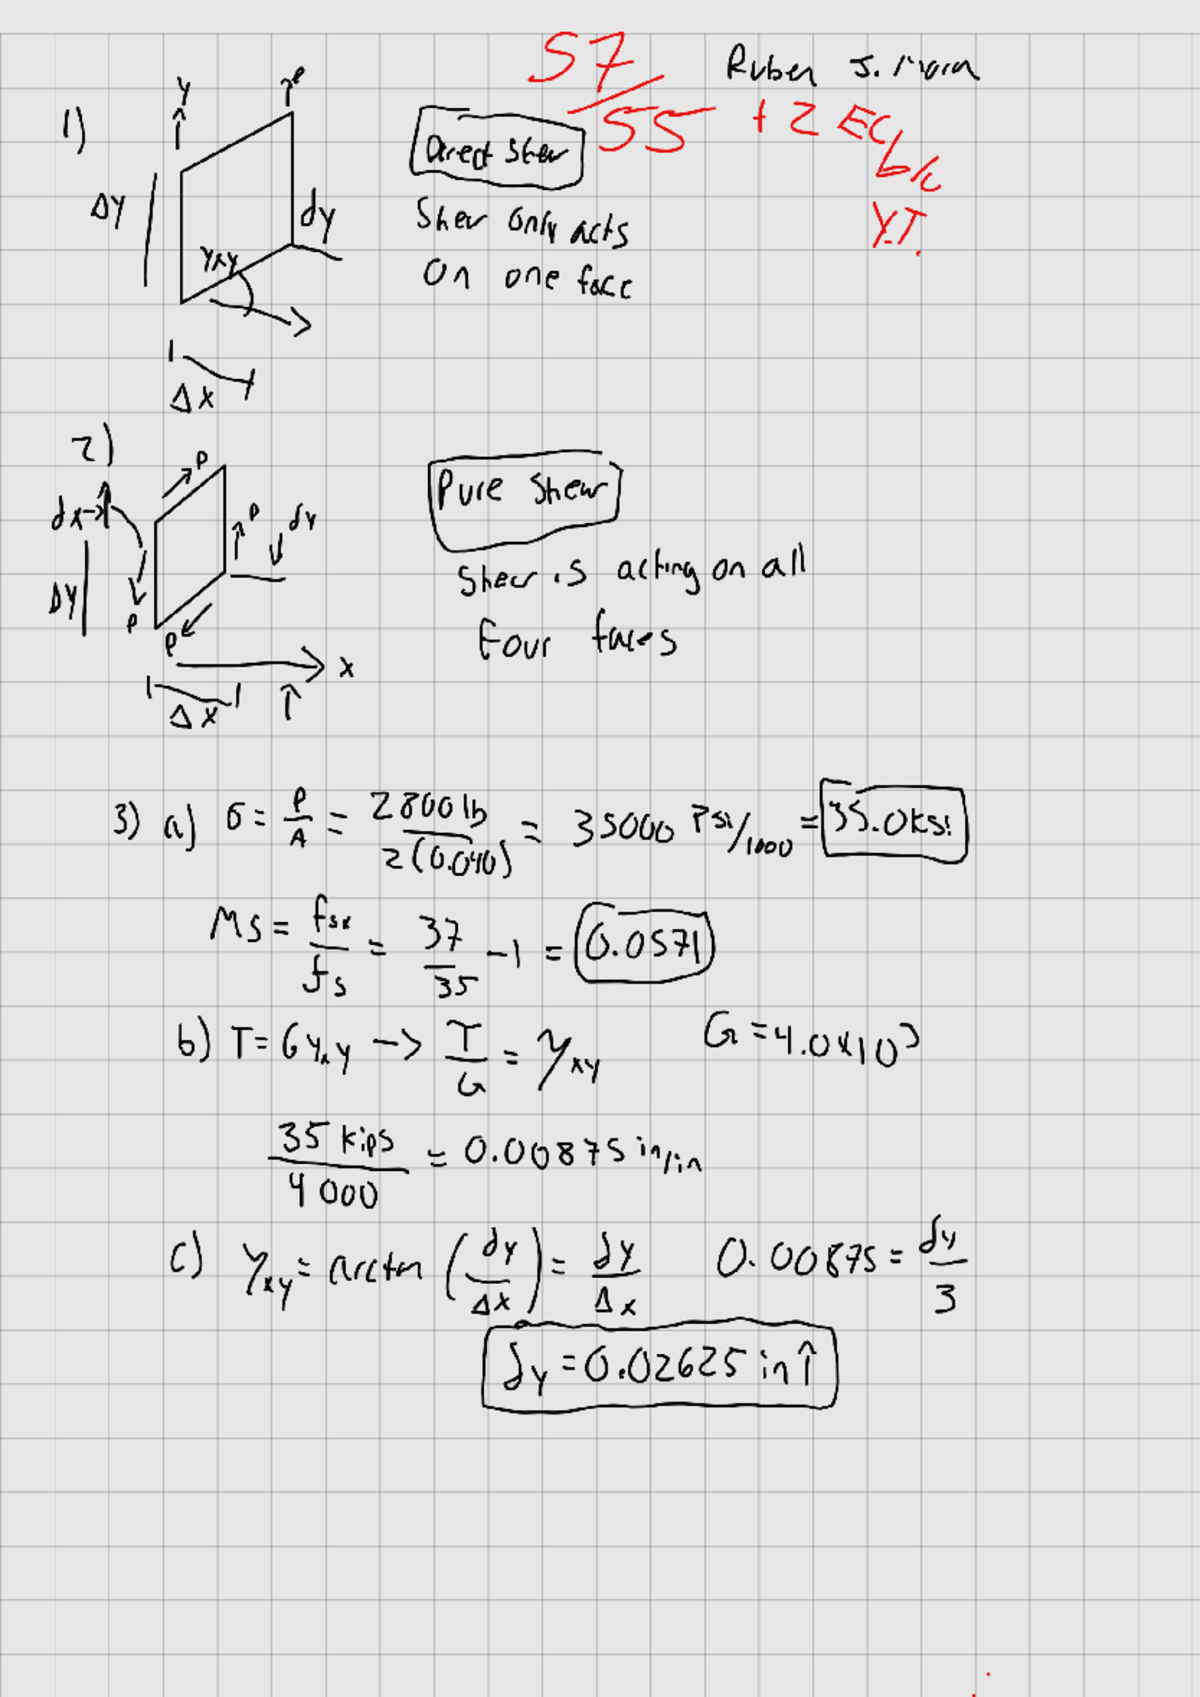 57/55 + 2 EC b/c Y.T.
Ruben J.
1)
y
P
Δy
dy
γxy
Δx
Direct Shear
Shear only acts
on one face
2)
P
dx→
P
dy
Δy
P
P
x
Δx
Pure Shear
Shear is acting on all
Four faces
3) a) σ = P/A = 2800 lb / 2(0.040) = 35000 Psi/1000 = 35.0 ksi
MS = fsu/fs = 37/35 - 1 = 0.0571
b) T = Gγxy → T/G = γxy G = 4.0x10³
35 kips / 4000 = 0.00875 in/in
c) γxy = arctan (dy/Δx) = dy/Δx 0.00875 = dy/3
dy = 0.02625 in ↑